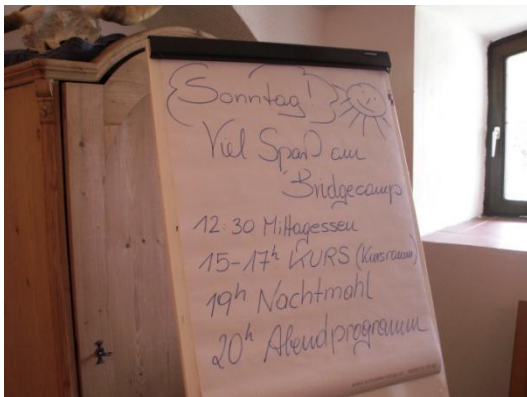 Sonntag!
Viel Spaß am
Bridgecamp
12:30 Mittagessen
15-17h KURS (Kursraum)
19h Nachtmahl
20h Abendprogramm